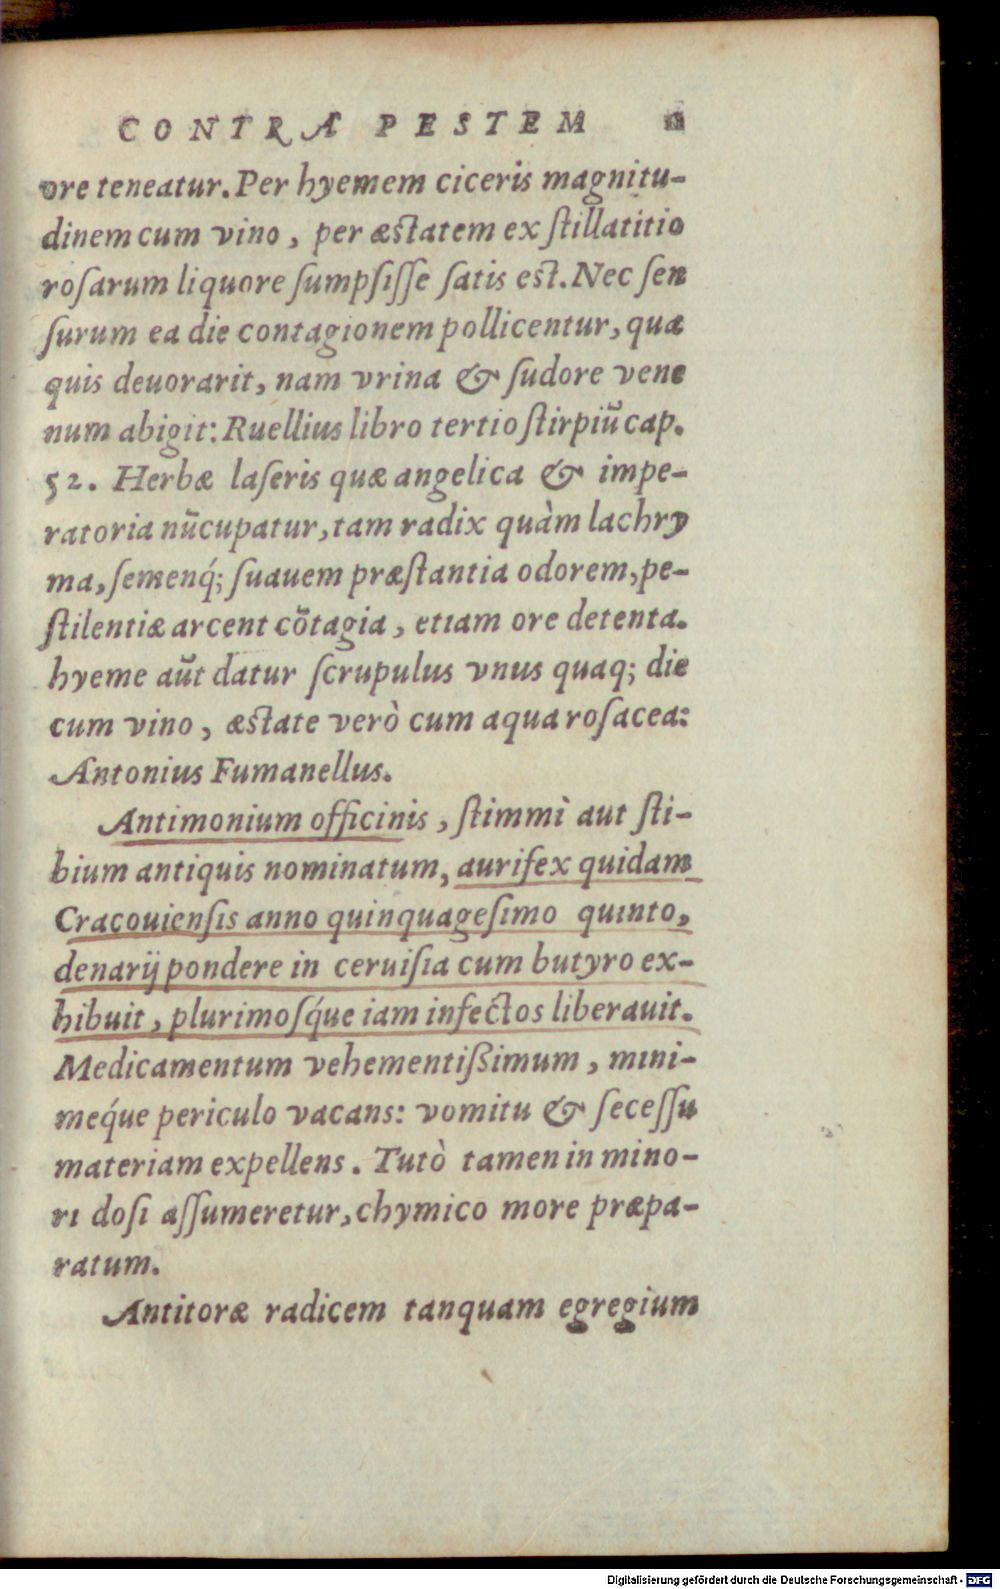 CONTRA PESTEM
ore teneatur. Per hyemem ciceris magnitu-
dinem cum vino, per æstatem ex stillatitio
roſarum liquore ſumpſiſſe ſatis est. Nec ſen
ſurum ea die contagionem pollicentur, qua
quis deuorarit, nam vrina & ſudore vene
num abigit: Ruellius libro tertio ſtirpiũ cap.
52. Herbæ laſeris quæ angelica & impe-
ratoria nũcupatur, tam radix quàm lachry
ma, ſemenq́; ſuauem præſtantia odorem, pe-
ſtilentiæ arcent cõtagia, etiam ore detenta.
hyeme aũt datur ſcrupulus vnus quaq; die
cum vino, æstate verò cum aqua roſacea:
Antonius Fumanellus.
Antimonium officinis, ſtimmì aut ſti-
bium antiquis nominatum, aurifex quidam
Cracouienſis anno quinquageſimo quinto,
denarij pondere in ceruiſia cum butyro ex-
hibuit, plurimoſq́ue iam infectos liberauit.
Medicamentum vehementißimum, mini-
meq́ue periculo vacans: vomitu & ſeceſſu
materiam expellens. Tutò tamen in mino-
ri doſi aſſumeretur, chymico more præpa-
ratum.
Antitoræ radicem tanquam egregium
Digitalisierung gefördert durch die Deutsche Forschungsgemeinschaft - DFG